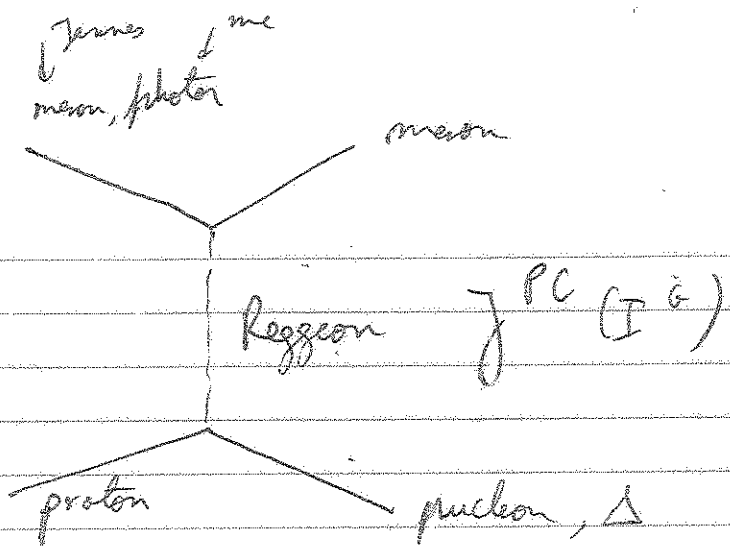 ↓ Jannes ↓ me
meson, photon
meson
Reggeon J^PC (I^G)
proton
nucleon, Δ